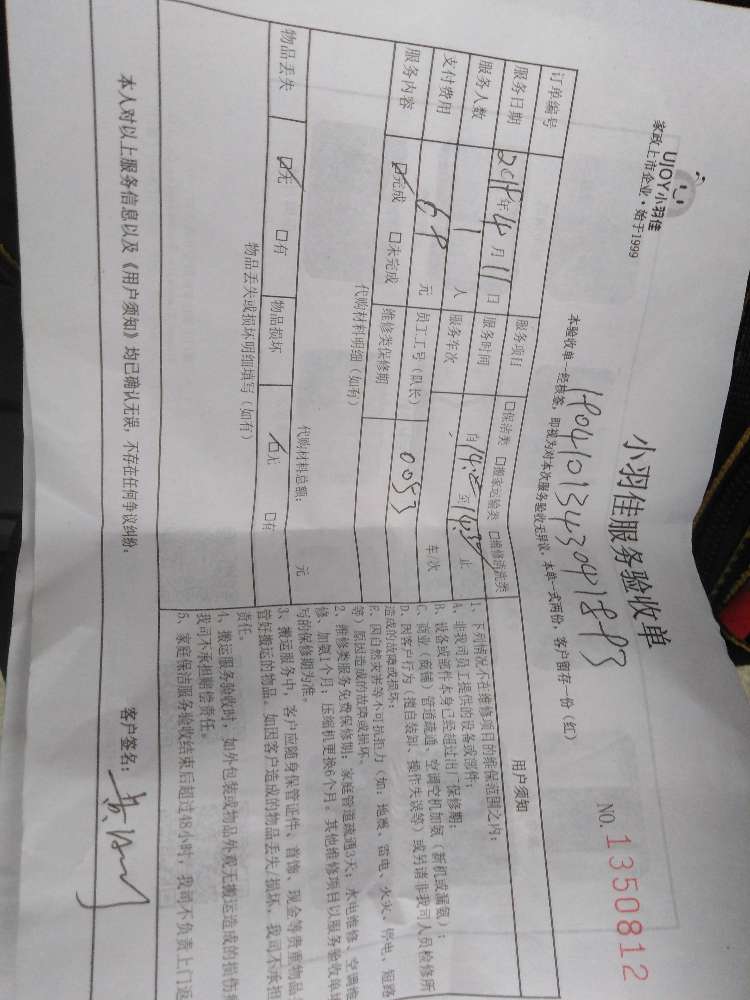 UJOY小羽佳
家政上市企业·始于1999
小羽佳服务验收单
NO. 1350812
本验收单一经核签，即视为对本次服务验收无异议，本单一式两份，客户留存一份（红）
订单编号
服务项目 □保洁类 □搬家运输类 □维修清洗类
服务日期 年4月11日 服务时间 自14: 至14:30止
服务人数 1 人 服务车次 车/次
支付费用 元 员工工号（队长） 0053
服务内容 ☑完成 □未完成 维修类保修期
代购材料明细（如有）
代购材料总额： 元
物品丢失 ☑无 □有 物品损坏 ☑无 □有
物品丢失或损坏明细填写（如有）
用户须知
1、下列情况不在维修项目的维保范围之内：
A、非我司员工提供的设备或部件；
B、设备或部件本身已经超过出厂保修期；
C、商业（商铺）管道疏通、空调空机加氨（新机或漏氨）；
D、因客户行为（擅自装卸、操作失误等）或另请非我司人员检修所
造成的故障或损坏；
E、因自然灾害等不可抗拒力（如：地震、雷电、火灾、停电、短路
等）原因造成的故障或损坏。
2、维修类服务免费保修期：家庭管道疏通3天；水电维修、空调维
修、加氨1个月；压缩机更换6个月。其他维修项目以服务验收单
写的保修期为准。
3、搬运服务中，客户应随身保管证件、首饰、现金等贵重物品
管好搬运的物品。如因客户造成的物品丢失/损坏，我司不承担
责任。
4、搬运服务验收时，如外包装或物品外观无搬运造成的损伤
我司不承担赔偿责任。
5、家庭保洁服务验收结束后超过48小时，我司不负责上门返
本人对以上服务信息以及《用户须知》均已确认无误，不存在任何争议纠纷。
客户签名：